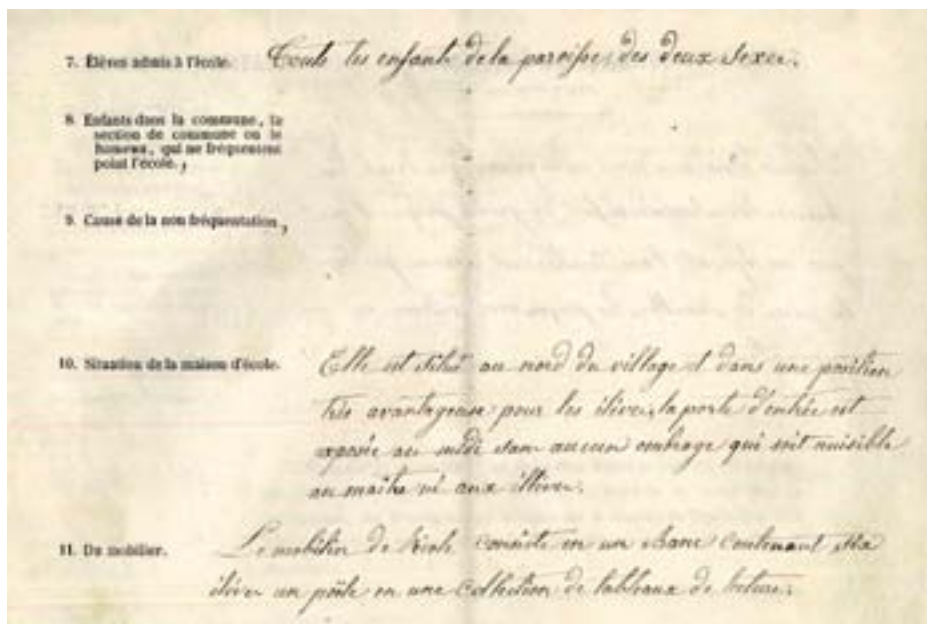 7. Élèves admis à l'école. Touts les enfants de la paroisse des deux sexes.
8. Enfants dans la commune, la
section de commune ou le
hameau, qui ne fréquentent
point l'école.,
9. Cause de la non fréquentation,
10. Situation de la maison d'école. Elle est située au nord du village et dans une position
très avantageuse pour les élèves, la porte d'entrée est
exposée au midi sans aucun ombrage qui soit nuisible
au maître ni aux élèves.
11. Du mobilier. Le mobilier de l'école consiste en un banc contenant
élèves un poële en une collection de tableaux de lecture.